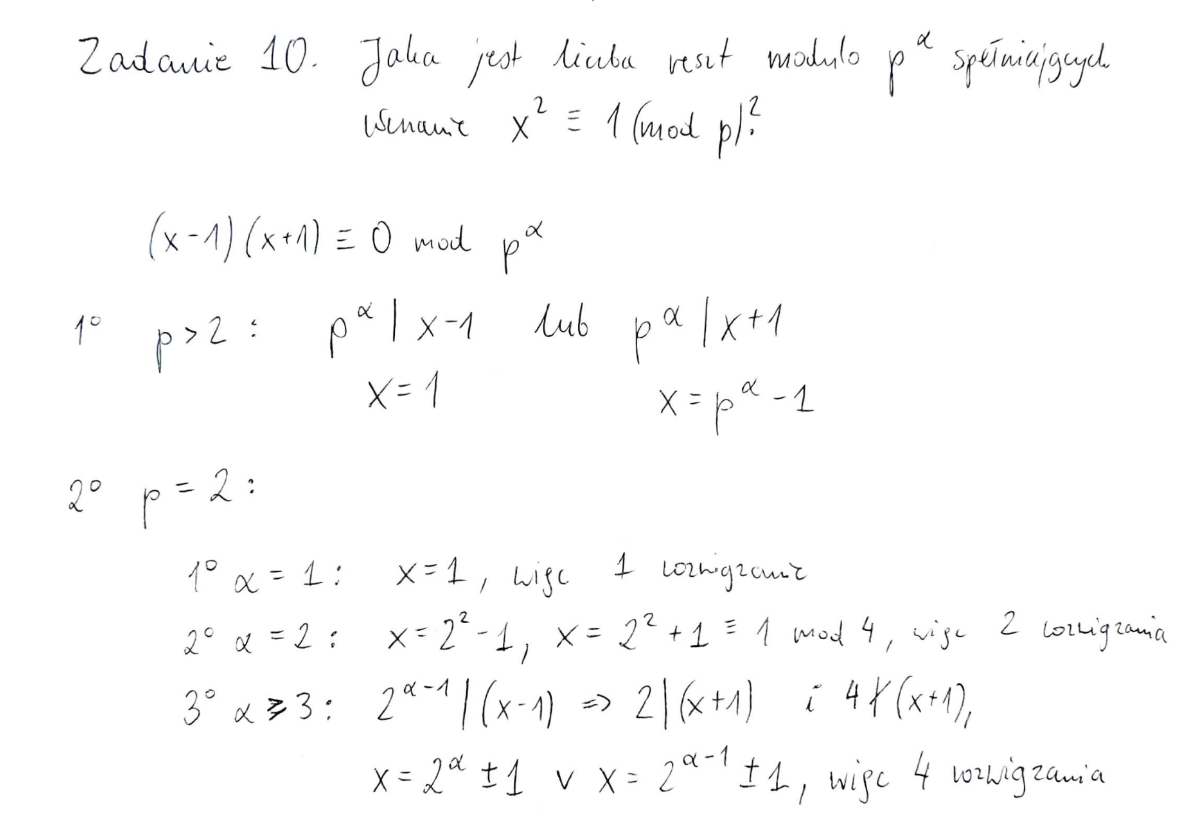 Zadanie 10. Jaka jest liczba reszt modulo p^α spełniających
równanie x² ≡ 1 (mod p)?
(x-1)(x+1) ≡ 0 mod p^α
1° p>2: p^α | x-1 lub p^α | x+1
x=1 x=p^α-1
2° p=2:
1° α=1: x=1, więc 1 rozwiązanie
2° α=2: x=2²-1, x=2²+1 ≡ 1 mod 4, więc 2 rozwiązania
3° α⩾3: 2^(α-1) | (x-1) => 2|(x+1) i 4∤(x+1),
x=2^α ± 1 v x=2^(α-1) ± 1, więc 4 rozwiązania